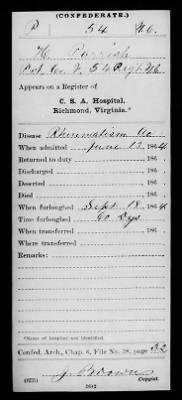 (CONFEDERATE.)
P 54 N.C.
H. Parrish
Co. F, 54 Regt N.C.
Appears on a Register of
C. S. A. Hospital,
Richmond, Virginia.*
Disease Rheumatism Ac
When admitted June 13, 1864
Returned to duty , 186
Discharged , 186
Deserted , 186
Died , 186
When furloughed Sept 18, 1864
Time furloughed 60 Dys
When transferred , 186
Where transferred
Remarks:
*Name of hospital not indicated.
Confed. Arch., Chap. 6, File No. 28, page 32
J. Brown
Copyist.
(635)
2642